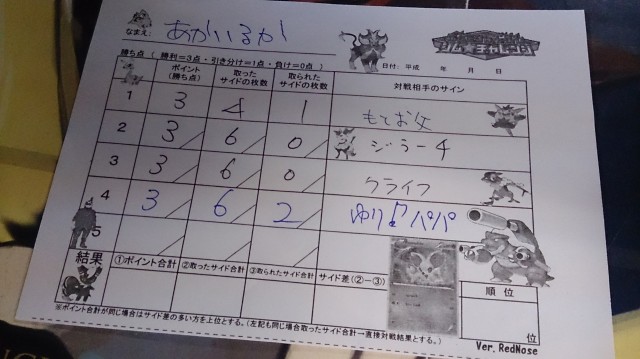 なまえ: あかいるか
ジム★チャレンジ
日付:平成 年 月 日
勝ち点 ( 勝利=3点・引き分け=1点・負け=0点 )
ポイント(勝ち点) 取ったサイドの枚数 取られたサイドの枚数 対戦相手のサイン
1 3 4 1 もとお父
2 3 6 0 ジラーチ
3 3 6 0 クライフ
4 3 6 2 ゆり♪パパ
5
結果 ①ポイント合計 ②取ったサイド合計 ③取られたサイド合計 サイド差(②ー③) 順位
位
※ポイント合計が同じ場合はサイド差の多い方を上位とする。(左記も同じ場合取ったサイド合計→直接対戦結果とする。)
Ver. RedNose